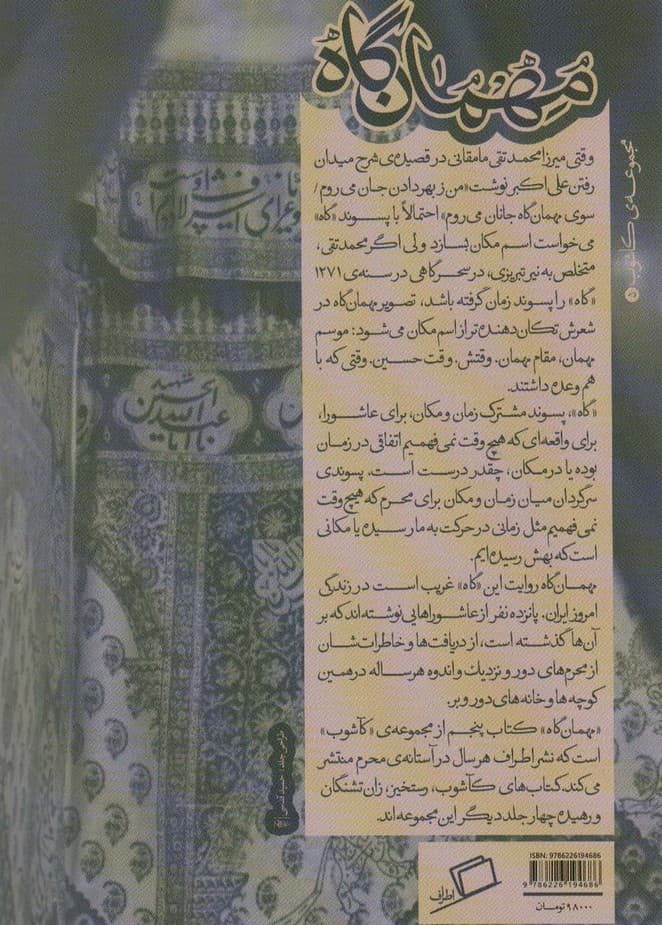 مهمان‌گاه
مجموعه‌ی کآشوب ۵
وقتی میرزا محمدتقی مامقانی در قصیده‌ی شرح میدان
رفتن علی‌اکبر نوشت «من ز بهر دادن جان می‌روم/
سوی مهمان‌گاه جانان می‌روم» احتمالاً با پسوند «گاه»
می‌خواست اسم مکان بسازد ولی اگر محمدتقی،
متخلص به نیر تبریزی، در سحرگاهی در سنه‌ی ۱۲۷۱
«گاه» را پسوند زمان گرفته باشد، تصویر مهمان‌گاه در
شعرش تکان‌دهنده‌تر از اسم مکان می‌شود: موسم
مهمان، مقام مهمان. وقتش. وقت حسین. وقتی که با
هم وعده داشتند.
«گاه»، پسوند مشترک زمان و مکان، برای عاشورا،
برای واقعه‌ای که هیچ وقت نمی‌فهمیم اتفاقی در زمان
بوده یا در مکان، چقدر درست است. پسوندی
سرگردان میان زمان و مکان برای محرم که هیچ‌وقت
نمی‌فهمیم مثل زمانی در حرکت به ما رسیده یا مکانی
است که بهش رسیده‌ایم.
مهمان‌گاه روایت این «گاه» غریب است در زندگی
امروز ایران. پانزده نفر از عاشوراهایی نوشته‌اند که بر
آن‌ها گذشته است، از دریافت‌ها و خاطرات‌شان
از محرم‌های دور و نزدیک و اندوه هرساله در همین
کوچه‌ها و خانه‌های دور و بر.
«مهمان‌گاه» کتاب پنجم از مجموعه‌ی «کآشوب»
است که نشر اطراف هر سال در آستانه‌ی محرم منتشر
می‌کند. کتاب‌های کآشوب، رستخیز، زان تشنگان
و رهیده چهار جلد دیگر این مجموعه‌اند.
شهید
ابا عبدالله الحسین
طراحی جلد: حمید قدسی
اطراف
ISBN: 9786226194686
9 786226 194686
۹۸۰۰۰ تومان